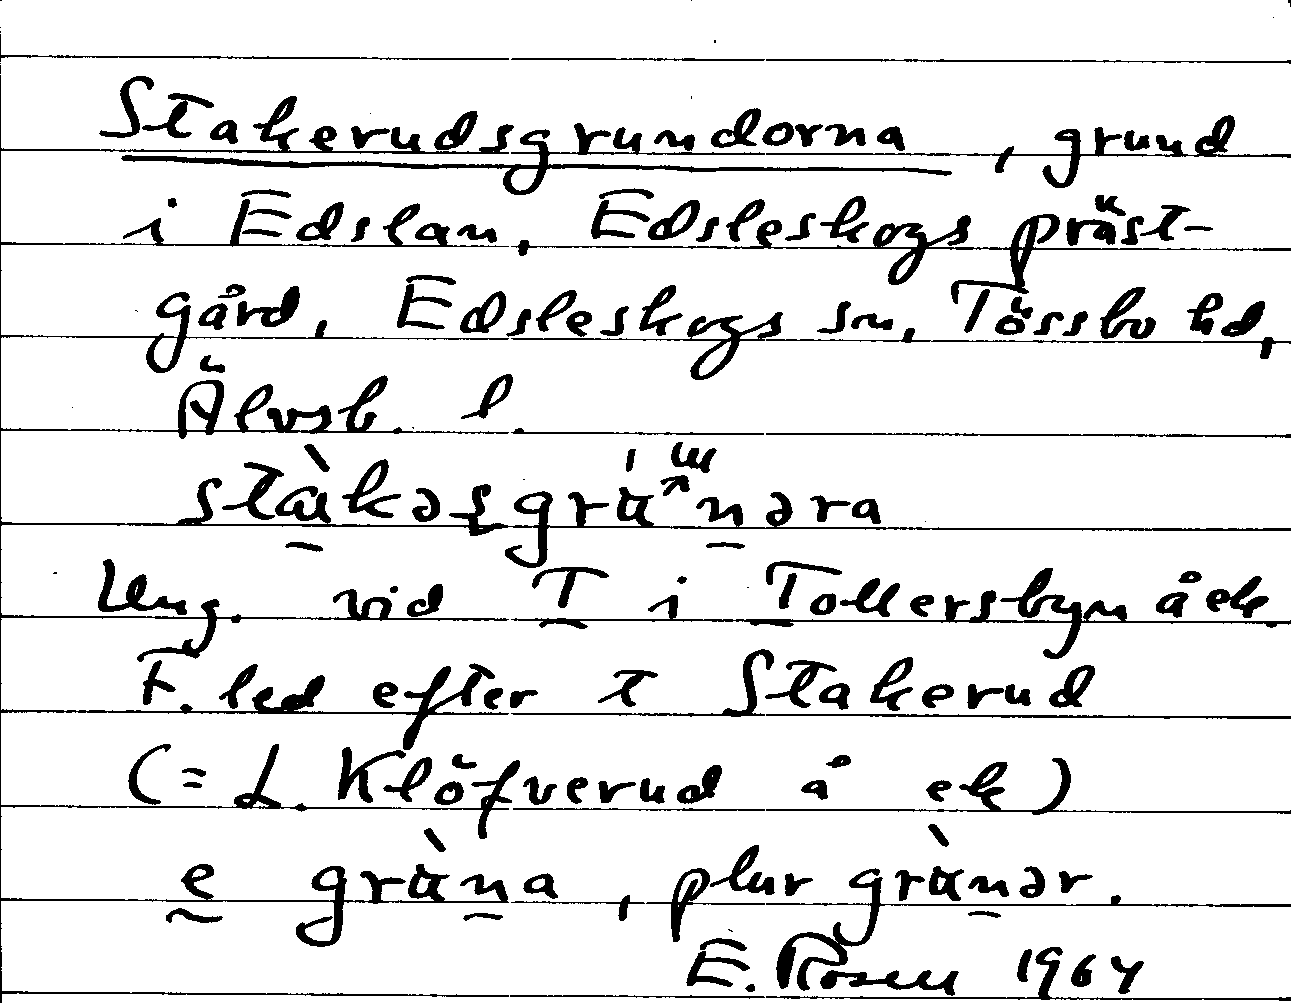 Stakerudsgrundorna, grund
i Edslan, Edsleskogs präst-
gård, Edsleskogs sn, Tössbo hd,
Älvsb. l.
Ung. vid T i Tollersbyn å ek.
F. led efter t Stakerud
(= L. Klöfverud å ek)
e gräna, plur gränər.
E. Rosen 1964